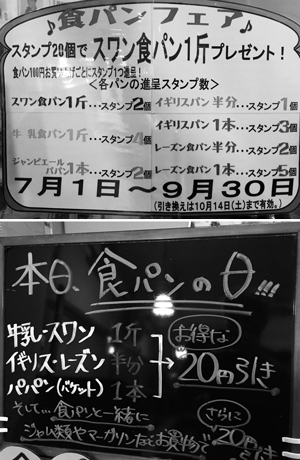 ♪食パンフェア♪
スタンプ28個で スワン食パン1斤プレゼント!
食パン100円お買い上げごとにスタンプ1つ進呈!
<各パンの進呈スタンプ数>
スワン食パン1斤…スタンプ2個
イギリスパン 半分…スタンプ1個
牛 乳食パン1斤…スタンプ4個
イギリスパン 1本…スタンプ3個
レーズン食パン 半分…スタンプ2個
ジャンピエール
パパン1本…スタンプ2個
レーズン食パン 1本…スタンプ5個
7月1日~9月30日
(引き換えは10月14日(土)まで有効。)
本日、食パンの日!!!
牛乳・スワン 1斤
イギリス・レーズン 半分
パパン(バケット) 1本
お得な
20円引き
そして…食パンと一緒に
ジャム類やマーガリンなどお買物で
さらに
20円
引き